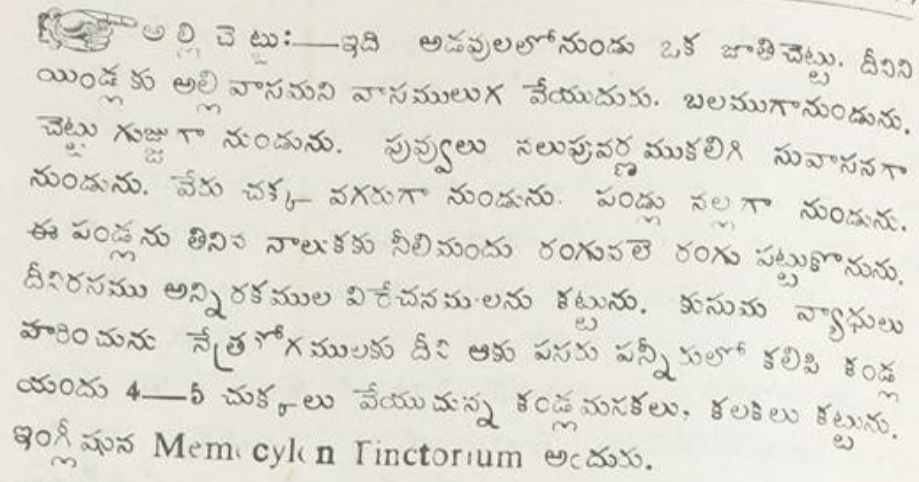 అల్లిచెట్టుః—ఇది అడవులలోనుండు ఒక జాతిచెట్టు. దీనిని
యిండ్లకు అల్లివాసమని వాసములుగ వేయుదురు. బలముగానుండును.
చెట్టు గుజ్జుగా నుండును. పువ్వులు నలుపువర్ణముకలిగి సువాసనగా
నుండును. వేరు చక్క వగరుగా నుండును. పండ్లు నల్లగా నుండును.
ఈ పండ్లను తినిన నాలుకకు నీలిమందు రంగువలె రంగు పట్టుకొనును.
దీనిరసము అన్నిరకముల విరేచనములను కట్టును. కుసుమ వ్యాధులు
హరించును నేత్రరోగములకు దీని ఆకు పసరు పన్నీరులో కలిపి కండ్ల
యందు 4—5 చుక్కలు వేయుచున్న కండ్లమసకలు, కలకలు కట్టును.
ఇంగ్లీషున Memecylon Tinctorium అందురు.